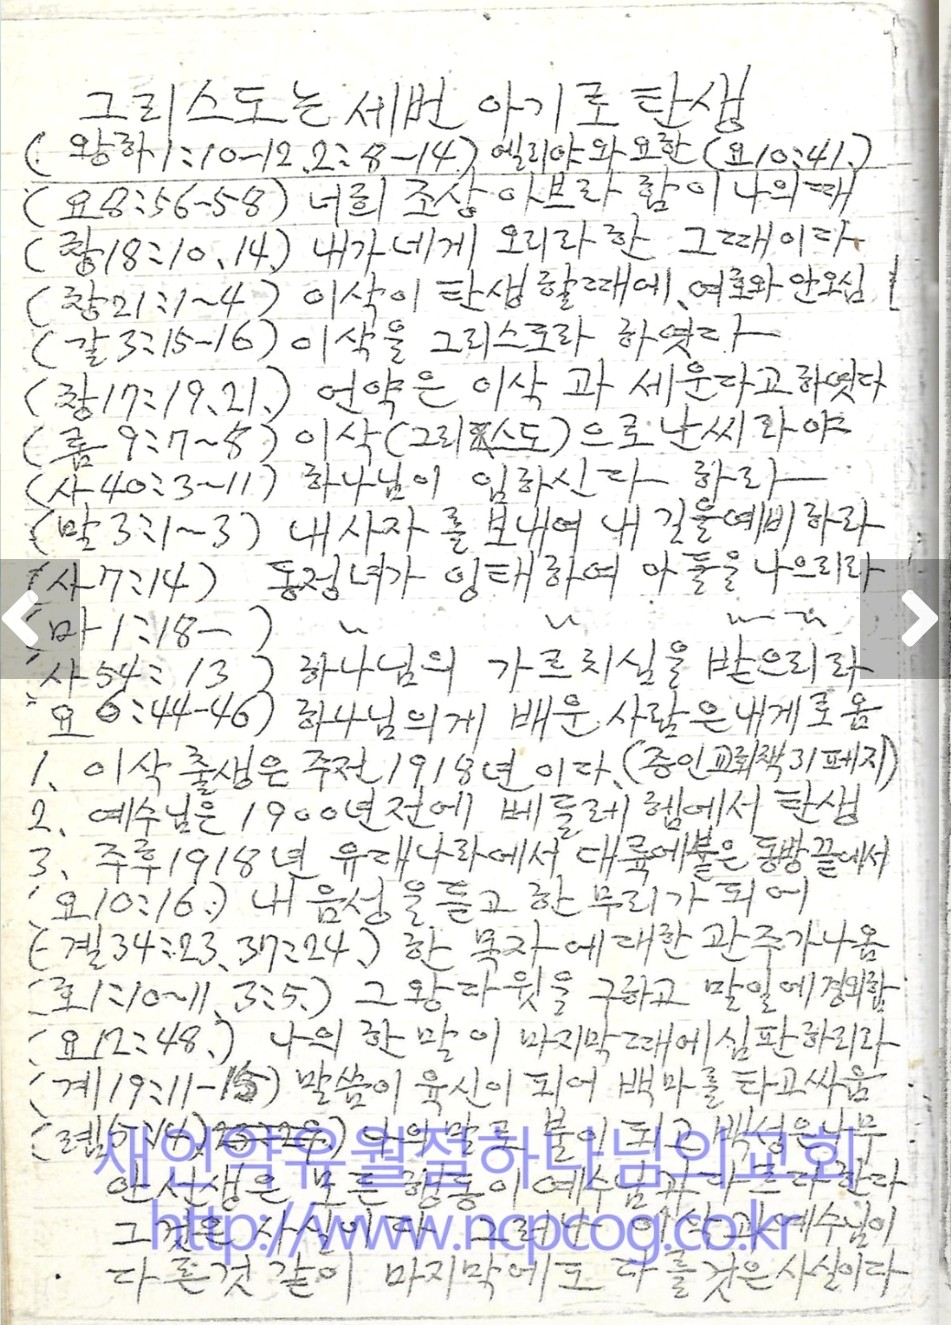 그리스도는 세번 아기로 탄생
(왕하1:10-12, 2:8-14) 엘리야와 요한 (요10:41.)
(요8:56-58) 너희 조상 아브라함이 나의 때
(창18:10, 14.) 내가 네게 오리라 한 그때이다
(창21:1~4) 이삭이 탄생할때에, 여호와 안오심!
(갈3:15-16) 이삭을 그리스도라 하엿다
(창17:19, 21.) 언약은 이삭과 세운다고 하엿다
(롬 9:7~8) 이삭(그리스도)으로 난 씨라야
(사40:3~11) 하나님이 임하신다 하라
(말3:1~3) 내 사자를 보내여 내 길을 예비하라
(사7:14) 동정녀가 잉태하여 아들을 나으리라
(마1:18- )
사54:13) 하나님의 가르치심을 받으리라
요 6:44-46) 하나님의게 배운 사람은 내게로 옴
1. 이삭 출생은 주전 1918년이다. (증인교회책 31페지)
2. 예수님은 1900년전에 베들레헴에서 탄생
3. 주후 1918년 유대나라에서 대륙에 붙은 동방 끝에서
(요10:16.) 내 음성을 듣고 한 무리가 되어
(겔34:23, 37:24.) 한 목자에 대한 관주가 나옴
(호1:10~11, 3:5.) 그 왕 다윗을 구하고 말일에 경외함
(요12:48.) 나의 한 말이 마지막 때에 심판하리라
(계19:11-15) 말씀이 육신이 되어 백마를 타고 싸움
(렘5:14) 너의 말로 불이 되고 백성은 나무
새언약유월절하나님의교회
안선생은 모든 행동이 예수님과 다르다 한다
그것은 사실이다. 그러나 이삭과 예수님이
http://www.ncpcog.co.kr
다른것 같이 마지막에도 다를것은 사실이다